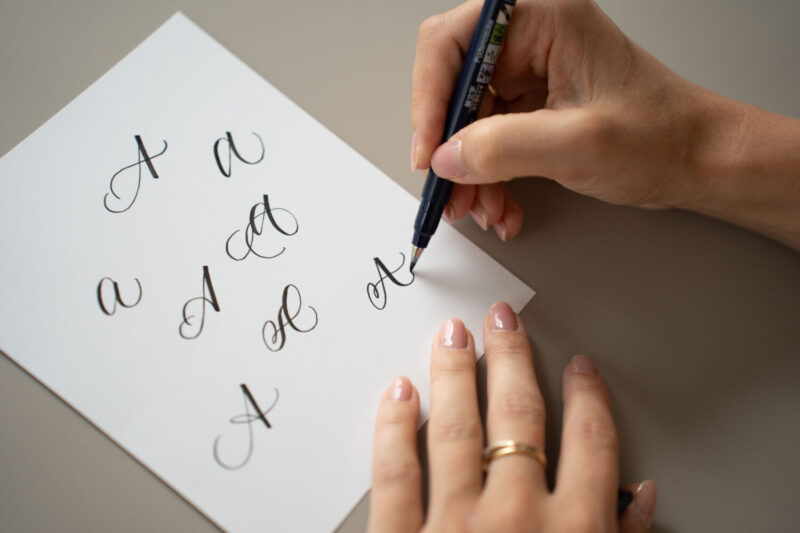 A a
A
a A A A
A